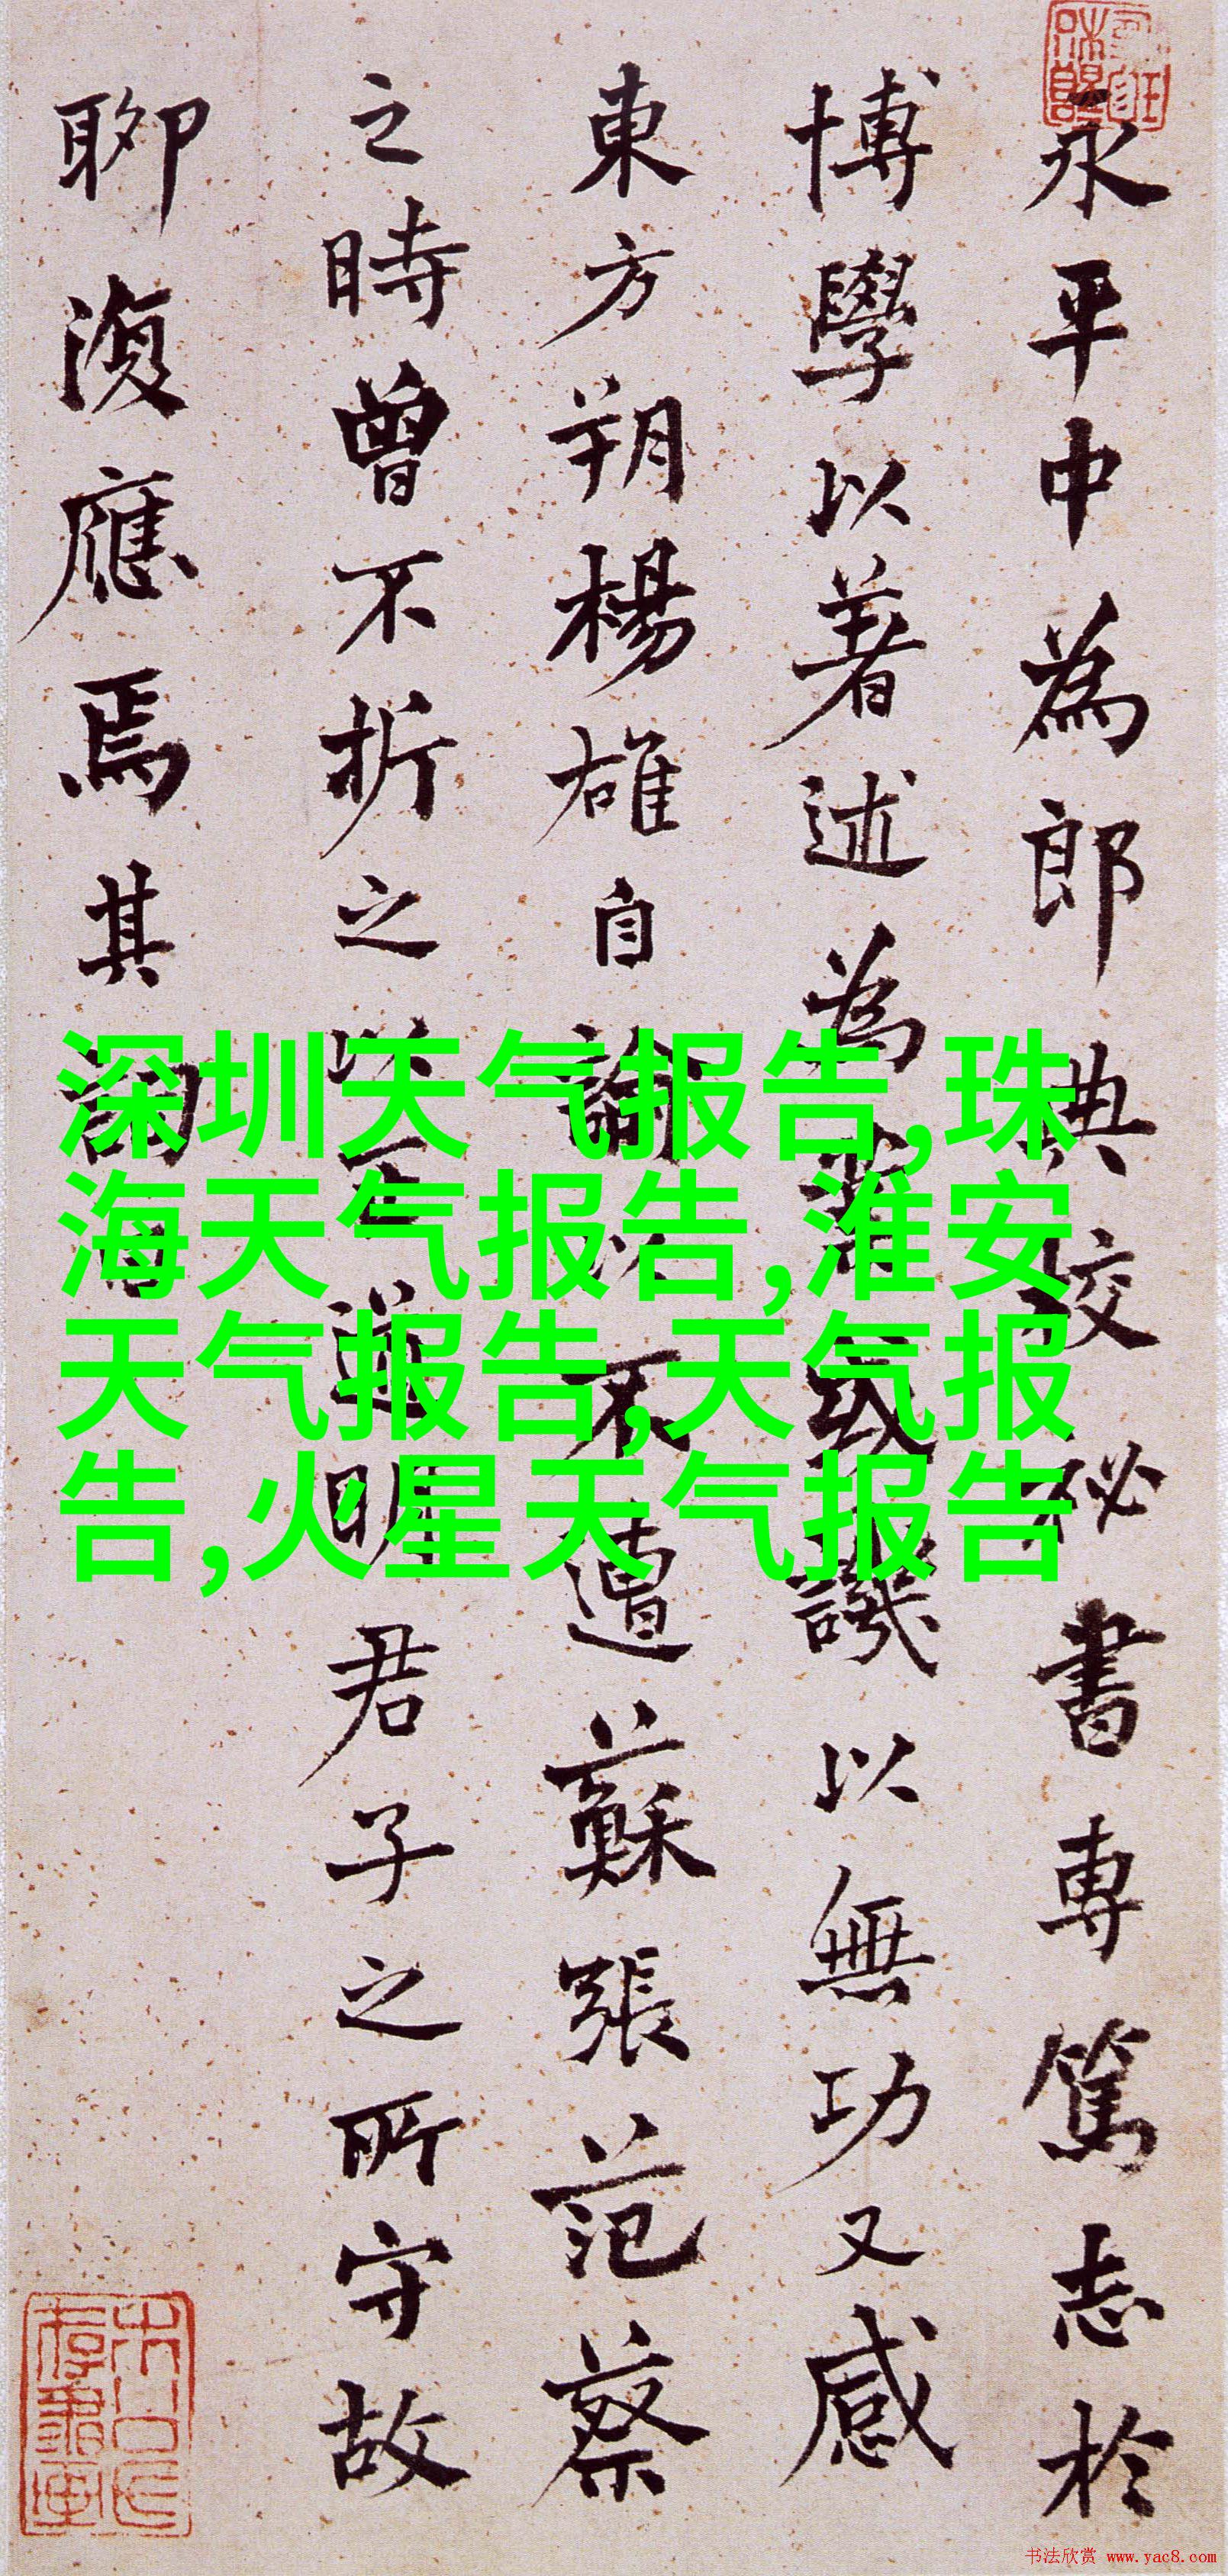 永平中為郎典校秘書專篤志於
博學以著述為業或譏以無功又感
東方朔楊雄自論以不遭蘇張范蔡
之時曾不折之以正道明君子之所守故
聊復應焉其詞曰
深圳天气报告,珠
海天气报告,淮安
天气报告,天气报
告,火星天气报告
书法欣赏 www.yac8.com